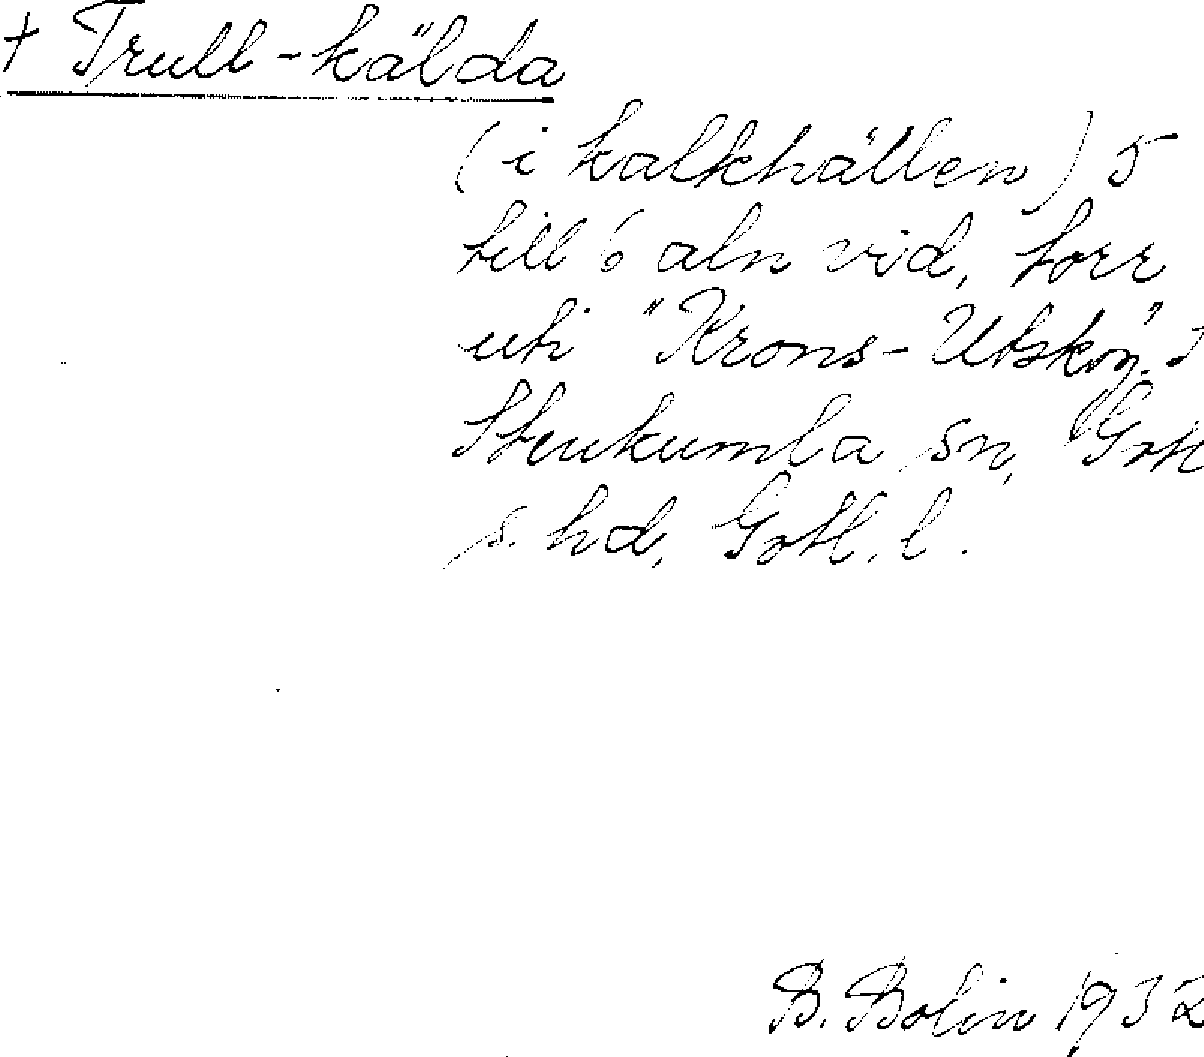 † Trull-kälda
(i kalkhällen) 5
till 6 aln vid, torr
uti "Krons-Utskog".
Stenkumla sn, Gotl
s. hd, Gotl. l.
B. Bolin 1932